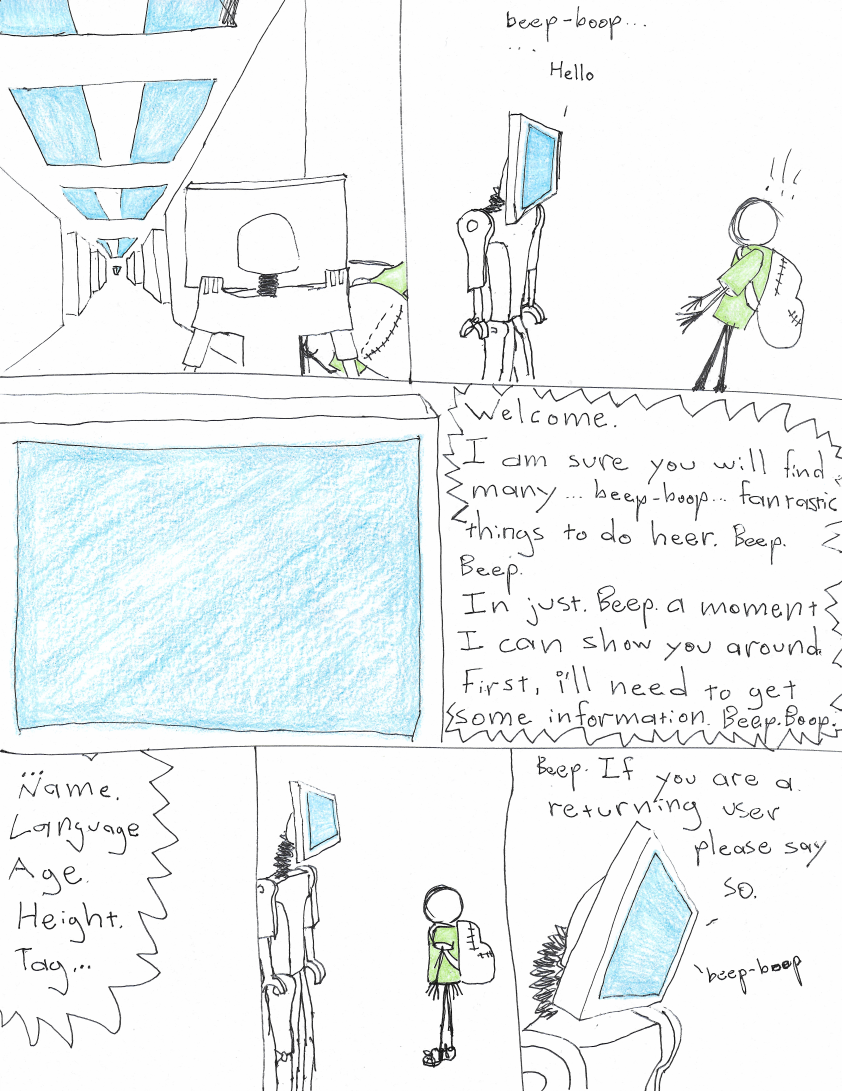 beep-boop...
...
Hello
!!!
Welcome.
I am sure you will find
many... beep-boop... fantastic
things to do heer. Beep.
Beep.
In just. Beep. a moment
I can show you around.
First, i'll need to get
some information. Beep. Boop.
...
Name.
Language
Age.
Height.
Tag...
Beep. If you are a
returning user
please say
so.
beep-boop